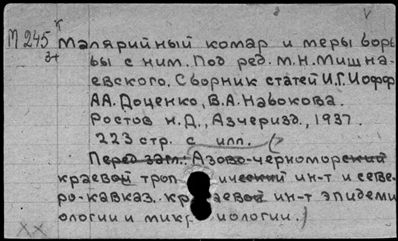 М 245 Малярийный комар и меры борь
3+ бы с ним. Под ред. М.Н. Мишна-
евского. Сборник статей И.Г. Иофф,
А.А. Доценко, В.А. Навокова.
Ростов н.Д., Азчеризд., 1937.
223 стр. с илл. (
Перед загл.: Азово-черноморский
краевой троп ический ин-т и севе-
ро-кавказ. краевой ин-т эпидеми
ологии и микр иологии.)
XX